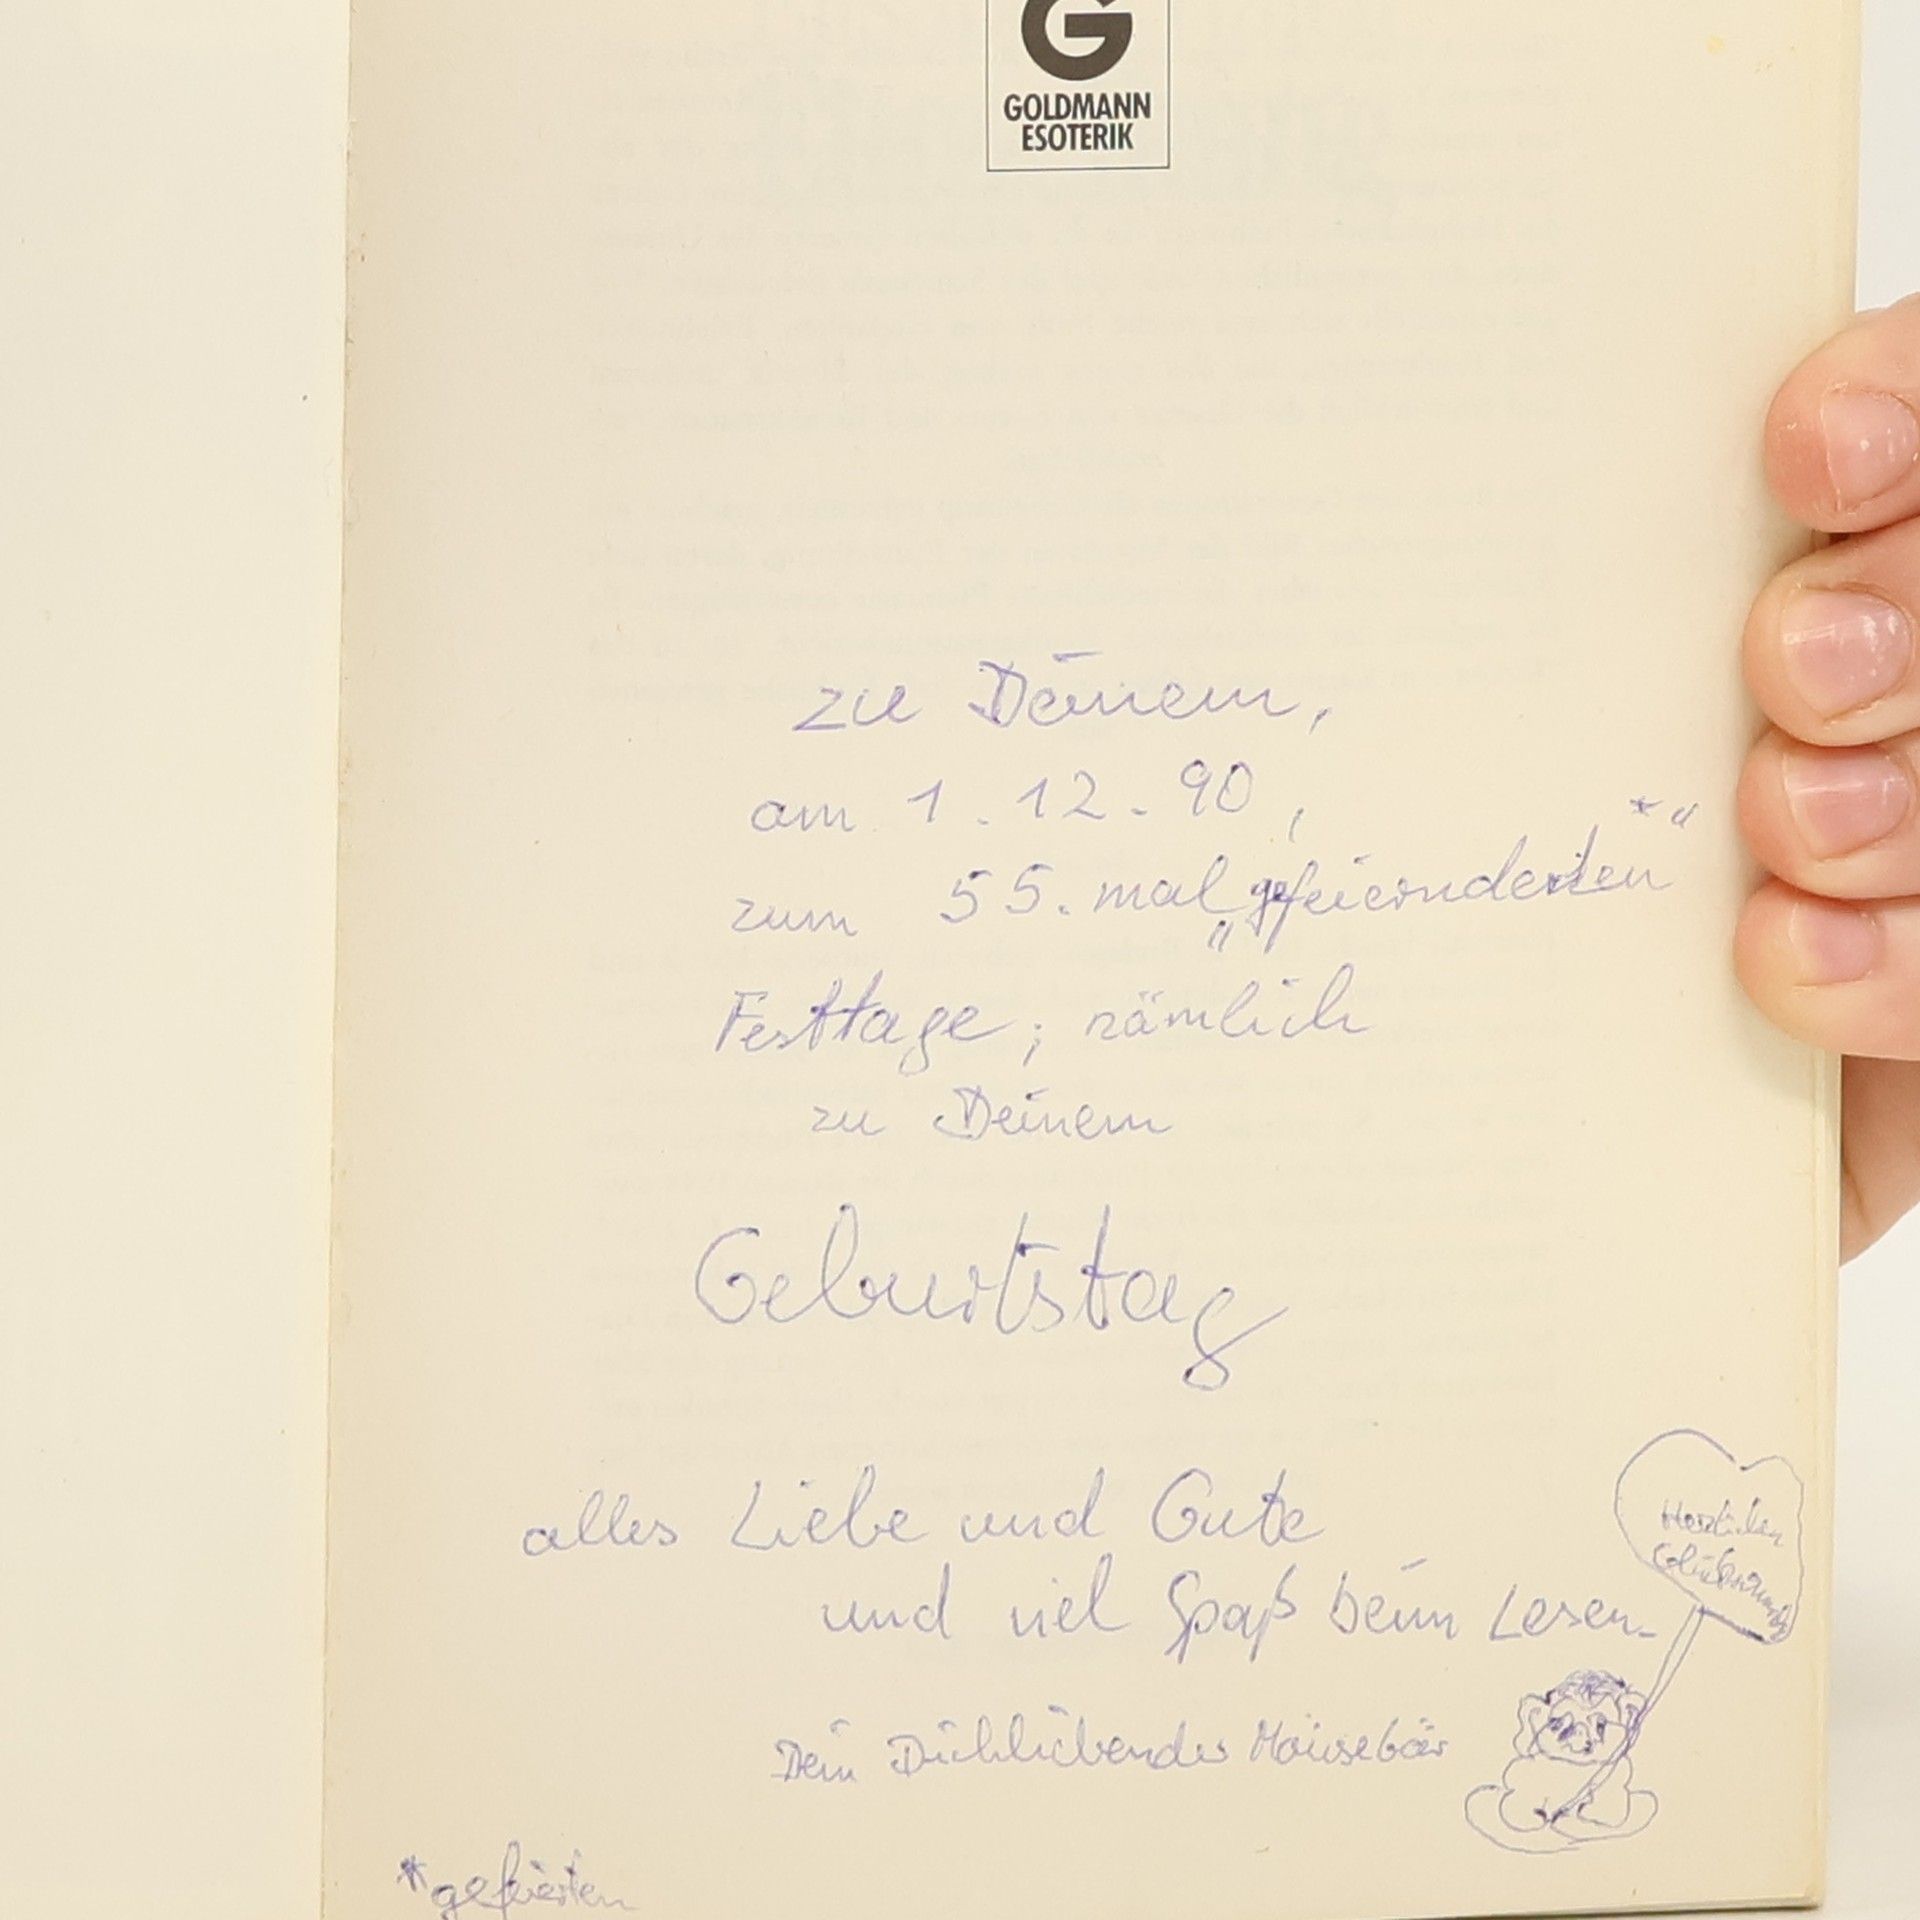 G
GOLDMANN
ESOTERIK
zu Deinem,
am 1.12.90,
zum 55. mal „gefeiernderten"*
Festtage; nämlich
zu Deinem
Geburtstag
alles Liebe und Gute
und viel Spaß beim Lesen.
Dein Dichliebender Mausebär
Herzlichen
*gefeierten